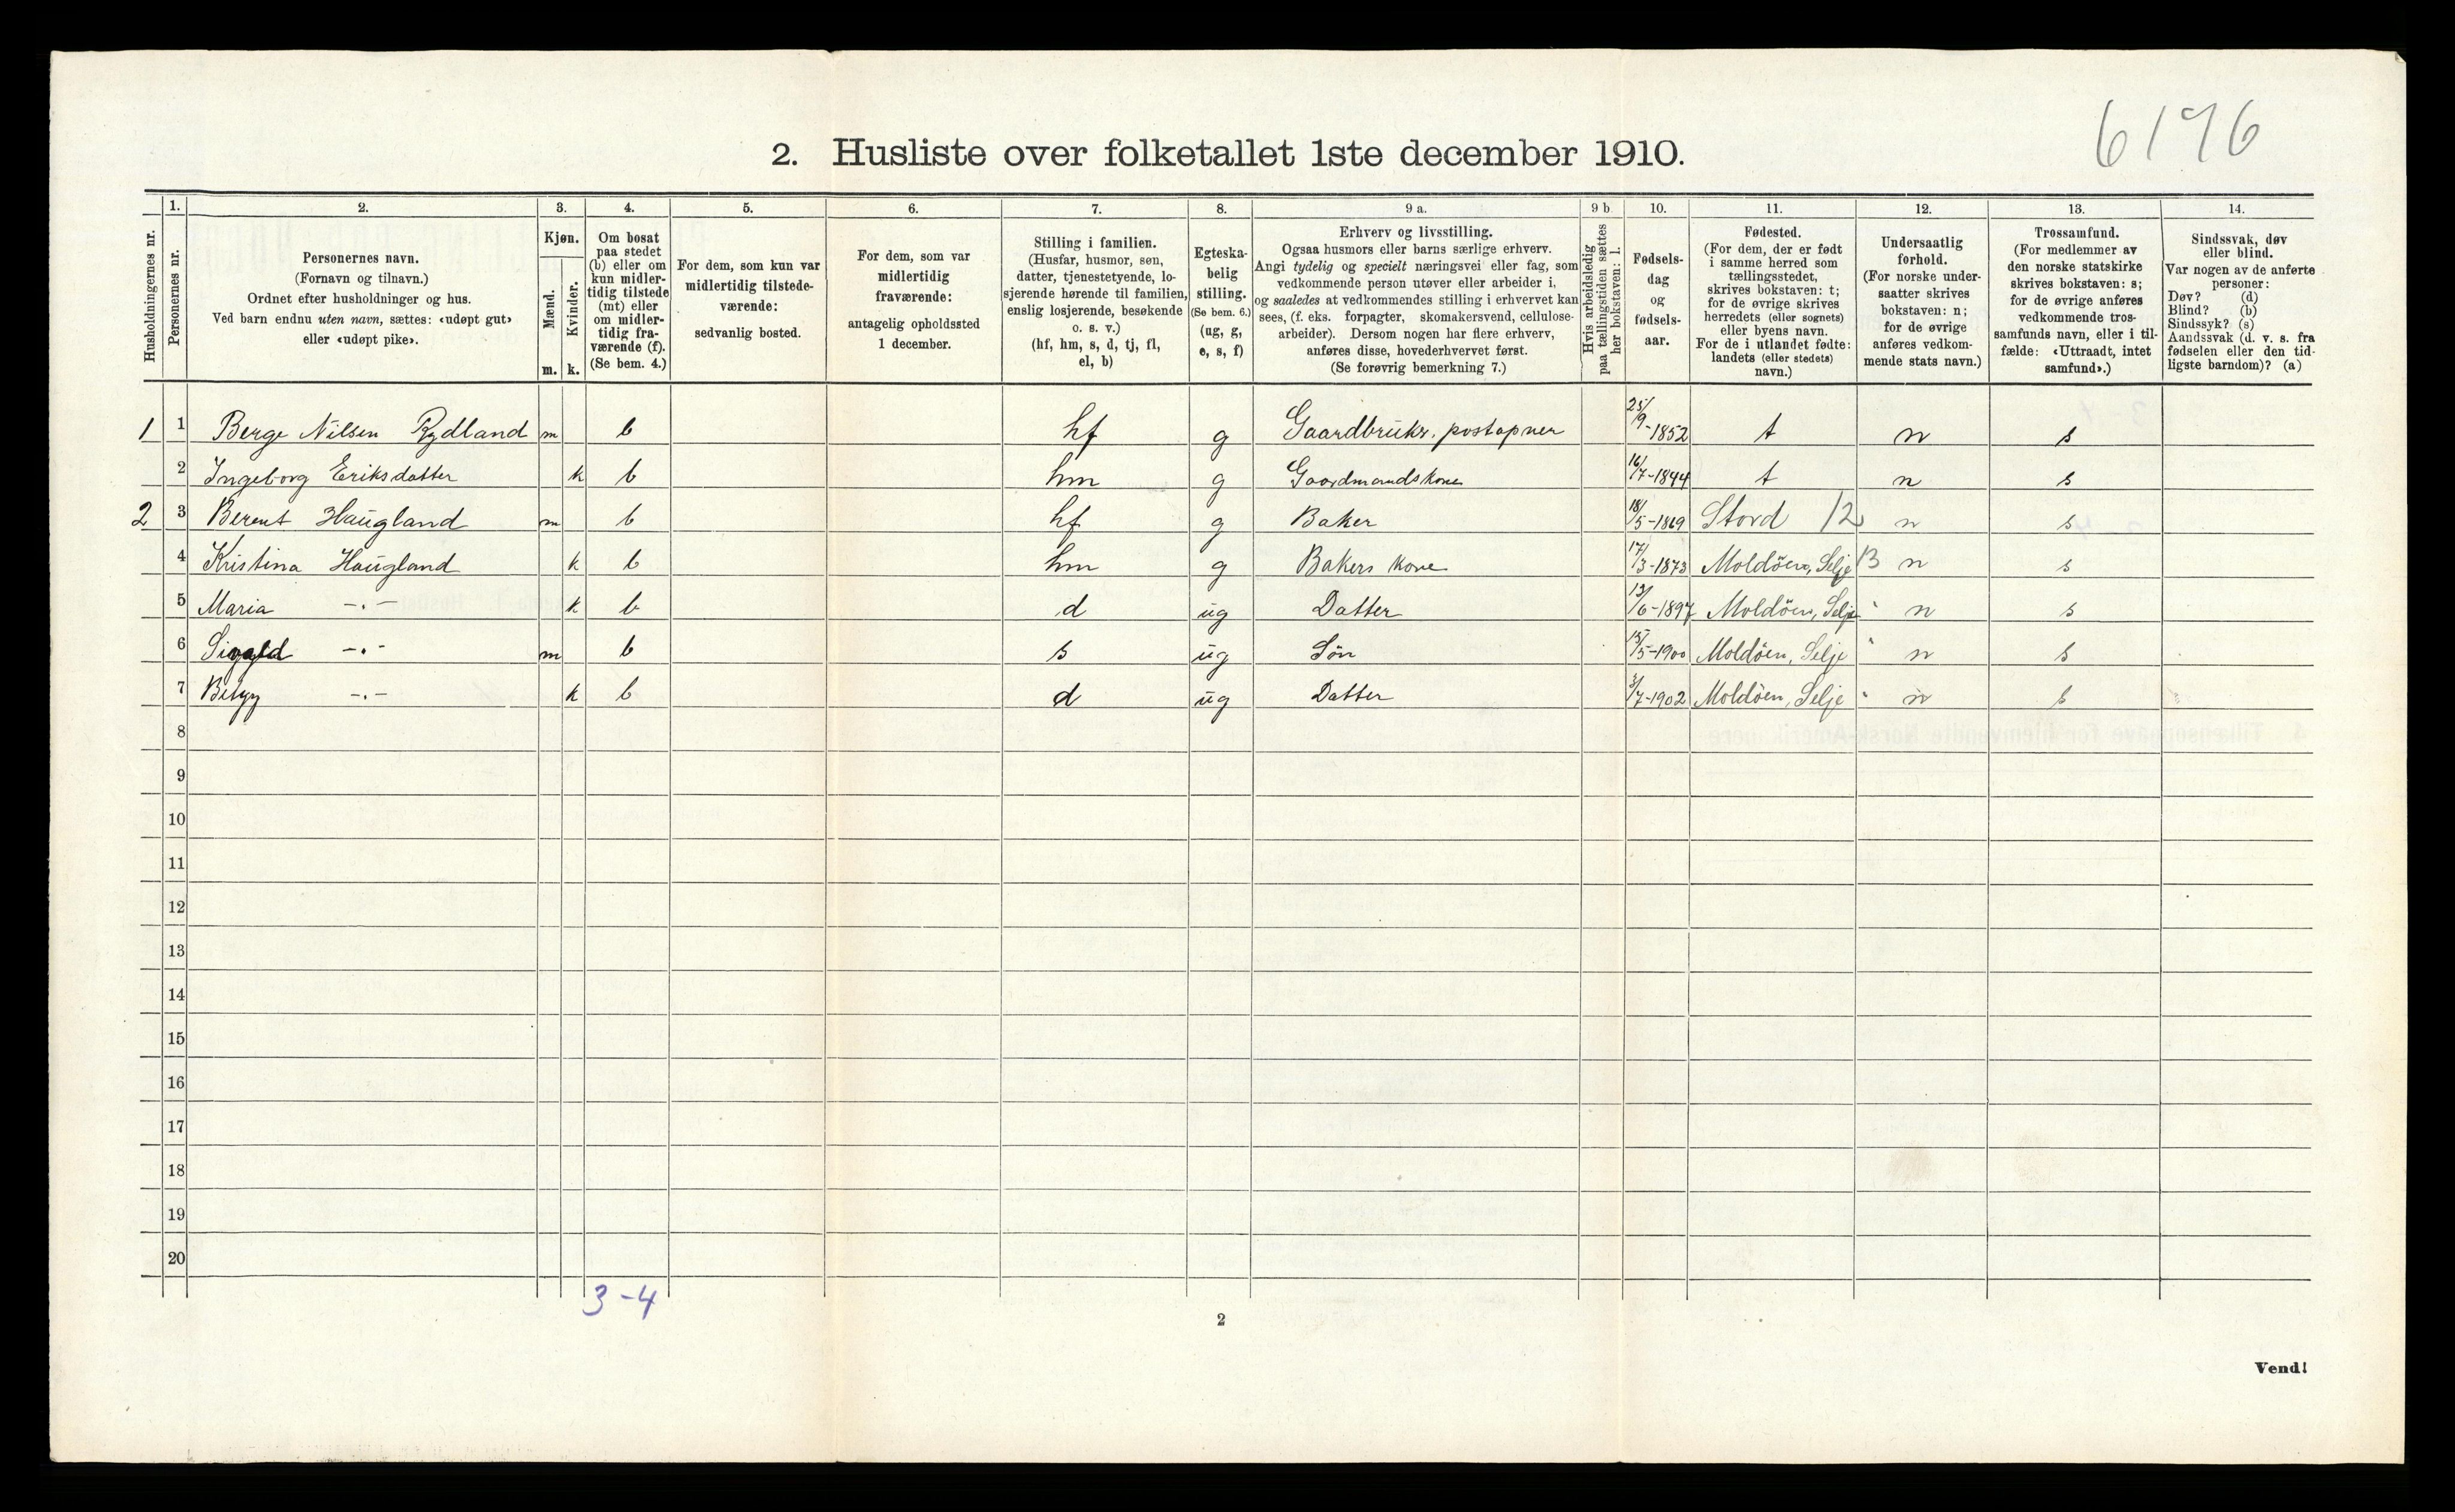 6196
2. Husliste over folketallet 1ste december 1910.
Husholdningernes nr.
1.
Personernes nr.
2.
Personernes navn.
(Fornavn og tilnavn.)
Ordnet efter husholdninger og hus.
Ved barn endnu uten navn, sættes: «udøpt gut»
eller «udøpt pike».
3.
Kjøn.
Mænd.
Kvinder.
m. k.
4.
Om bosat
paa stedet
(b) eller om
kun midler-
tidig tilstede
(mt) eller
om midler-
tidig fra-
værende (f).
(Se bem. 4.)
5.
For dem, som kun var
midlertidig tilstede-
værende:
sedvanlig bosted.
6.
For dem, som var
midlertidig
fraværende:
antagelig opholdssted
1 december.
7.
Stilling i familien.
(Husfar, husmor, søn,
datter, tjenestetyende, lo-
sjerende hørende til familien,
enslig losjerende, besøkende
o. s. v.)
(hf, hm, s, d, tj, fl,
el, b)
8.
Egteska-
belig
stilling.
(Se bem. 6.)
(ug, g,
e, s, f)
9 a.
Erhverv og livsstilling.
Ogsaa husmors eller barns særlige erhverv.
Angi tydelig og specielt næringsvei eller fag, som
vedkommende person utøver eller arbeider i,
og saaledes at vedkommendes stilling i erhvervet kan
sees, (f. eks. forpagter, skomakersvend, cellulose-
arbeider). Dersom nogen har flere erhverv,
anføres disse, hovederhvervet først.
(Se forøvrig bemerkning 7.)
9 b
Hvis arbeidsledig
paa tællingstiden sættes
her bokstaven: l.
10.
Fødsels-
dag
og
fødsels-
aar.
11.
Fødested.
(For dem, der er født
i samme herred som
tællingsstedet,
skrives bokstaven: t;
for de øvrige skrives
herredets (eller sognets)
eller byens navn.
For de i utlandet fødte:
landets (eller stedets)
navn.)
12.
Undersaatlig
forhold.
(For norske under-
saatter skrives
bokstaven: n;
for de øvrige
anføres vedkom-
mende stats navn.)
13.
Trossamfund.
(For medlemmer av
den norske statskirke
skrives bokstaven: s;
for de øvrige anføres
vedkommende tros-
samfunds navn, eller i til-
fælde: «Uttraadt, intet
samfund».)
14.
Sindssvak, døv
eller blind.
Var nogen av de anførte
personer:
Døv? (d)
Blind? (b)
Sindssyk? (s)
Aandssvak (d. v. s. fra
fødselen eller den tid-
ligste barndom)? (a)
1 1 Berge Nilsen Rydland m b hf g Gaardbruker. postapner 25/9-1852 t n s
2 Ingeborg Eriksdatter k b hm g Gaardmandskone 16/7-1844 t n s
2 3 Berent Haugland m b hf g Baker 18/5-1869 Stord 12 n s
4 Kristina Haugland k b hm g Bakers kone 17/3-1873 Moldöen, Selje 13 n s
5 Maria -.- k b d ug Datter 13/6-1897 Moldöen, Selje " n s
6 Sigvald -.- m b s ug Sön 15/5-1900 Moldöen, Selje " n s
7 -.- k b d ug Datter 3/7-1902 Moldöen, Selje " n s
8
9
10
11
12
13
14
15
16
17
18
19
20
3-4
2
Vend!